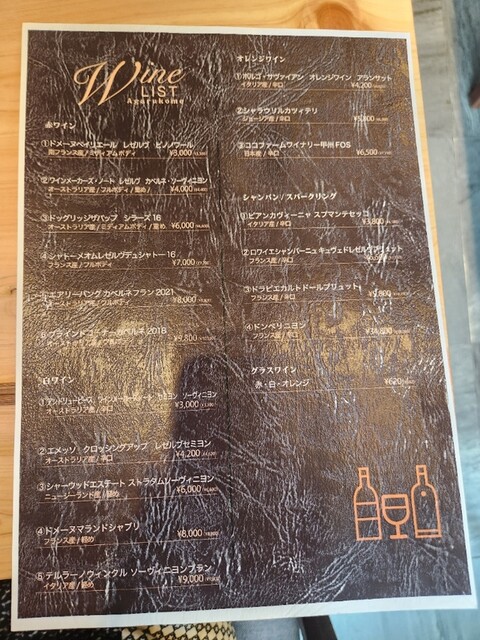 Wine
LIST
Agarukome
赤ワイン
①ドメーヌベイリエール レゼルブ ピノノワール
南フランス産 / ミディアムボディ ¥3,000
②ワインメーカーズ・ノート レゼルブ カベルネ・ソーヴィニヨン
オーストラリア産 / フルボディ / 重め ¥4,000
③ドッグリッジザパップ シラーズ 16
オーストラリア産 / ミディアムボディ / 重め ¥6,000
④シャトーメオムレゼルヴデュシャトー 16
フランス産 / フルボディ ¥7,000
エアリーバング カベルネフラン 2021
オーストラリア産 / フルボディ ¥8,000
ブラインドコーナー カベルネ 2018
オーストラリア産 ¥9,800
白ワイン
①アンドリューピース ワインメーカーズノート セミヨン ソーヴィニヨン
オーストラリア産 / 辛口 ¥3,000
②エメッソ クロッシングアップ レゼルブセミヨン
オーストラリア産 / 辛口 ¥4,200
③シャーウッドエステート ストラタムソーヴィニヨン
ニュージーランド産 / 軽め ¥6,000
④ドメーヌマランドシャブリ
フランス産 / 軽め ¥8,000
⑤テルラーノウィンクル ソーヴィニヨンブラン
イタリア産 / 軽め ¥9,000
オレンジワイン
①ボルゴ・サヴァイアン オレンジワイン アランサット
イタリア産 / 辛口 ¥4,200
②シャラウリルカツィテリ
ジョージア産 / 辛口 ¥5,800
③ココファームワイナリー甲州 FOS
日本産 / 辛口 ¥6,500
シャンパン / スパークリング
①ビアンカヴィーニャ スプマンテセッコ
イタリア産 / 辛口 ¥3,800
②ロワイエシャンパーニュ キュヴェドレゼルヴ ブリュット
フランス産 / 辛口
③ドラピエカルトドールブリュット
フランス産 / 辛口 ¥9,800
④ドンペリニヨン
フランス産 / 辛口 ¥34,800
グラスワイン
赤・白・オレンジ ¥620